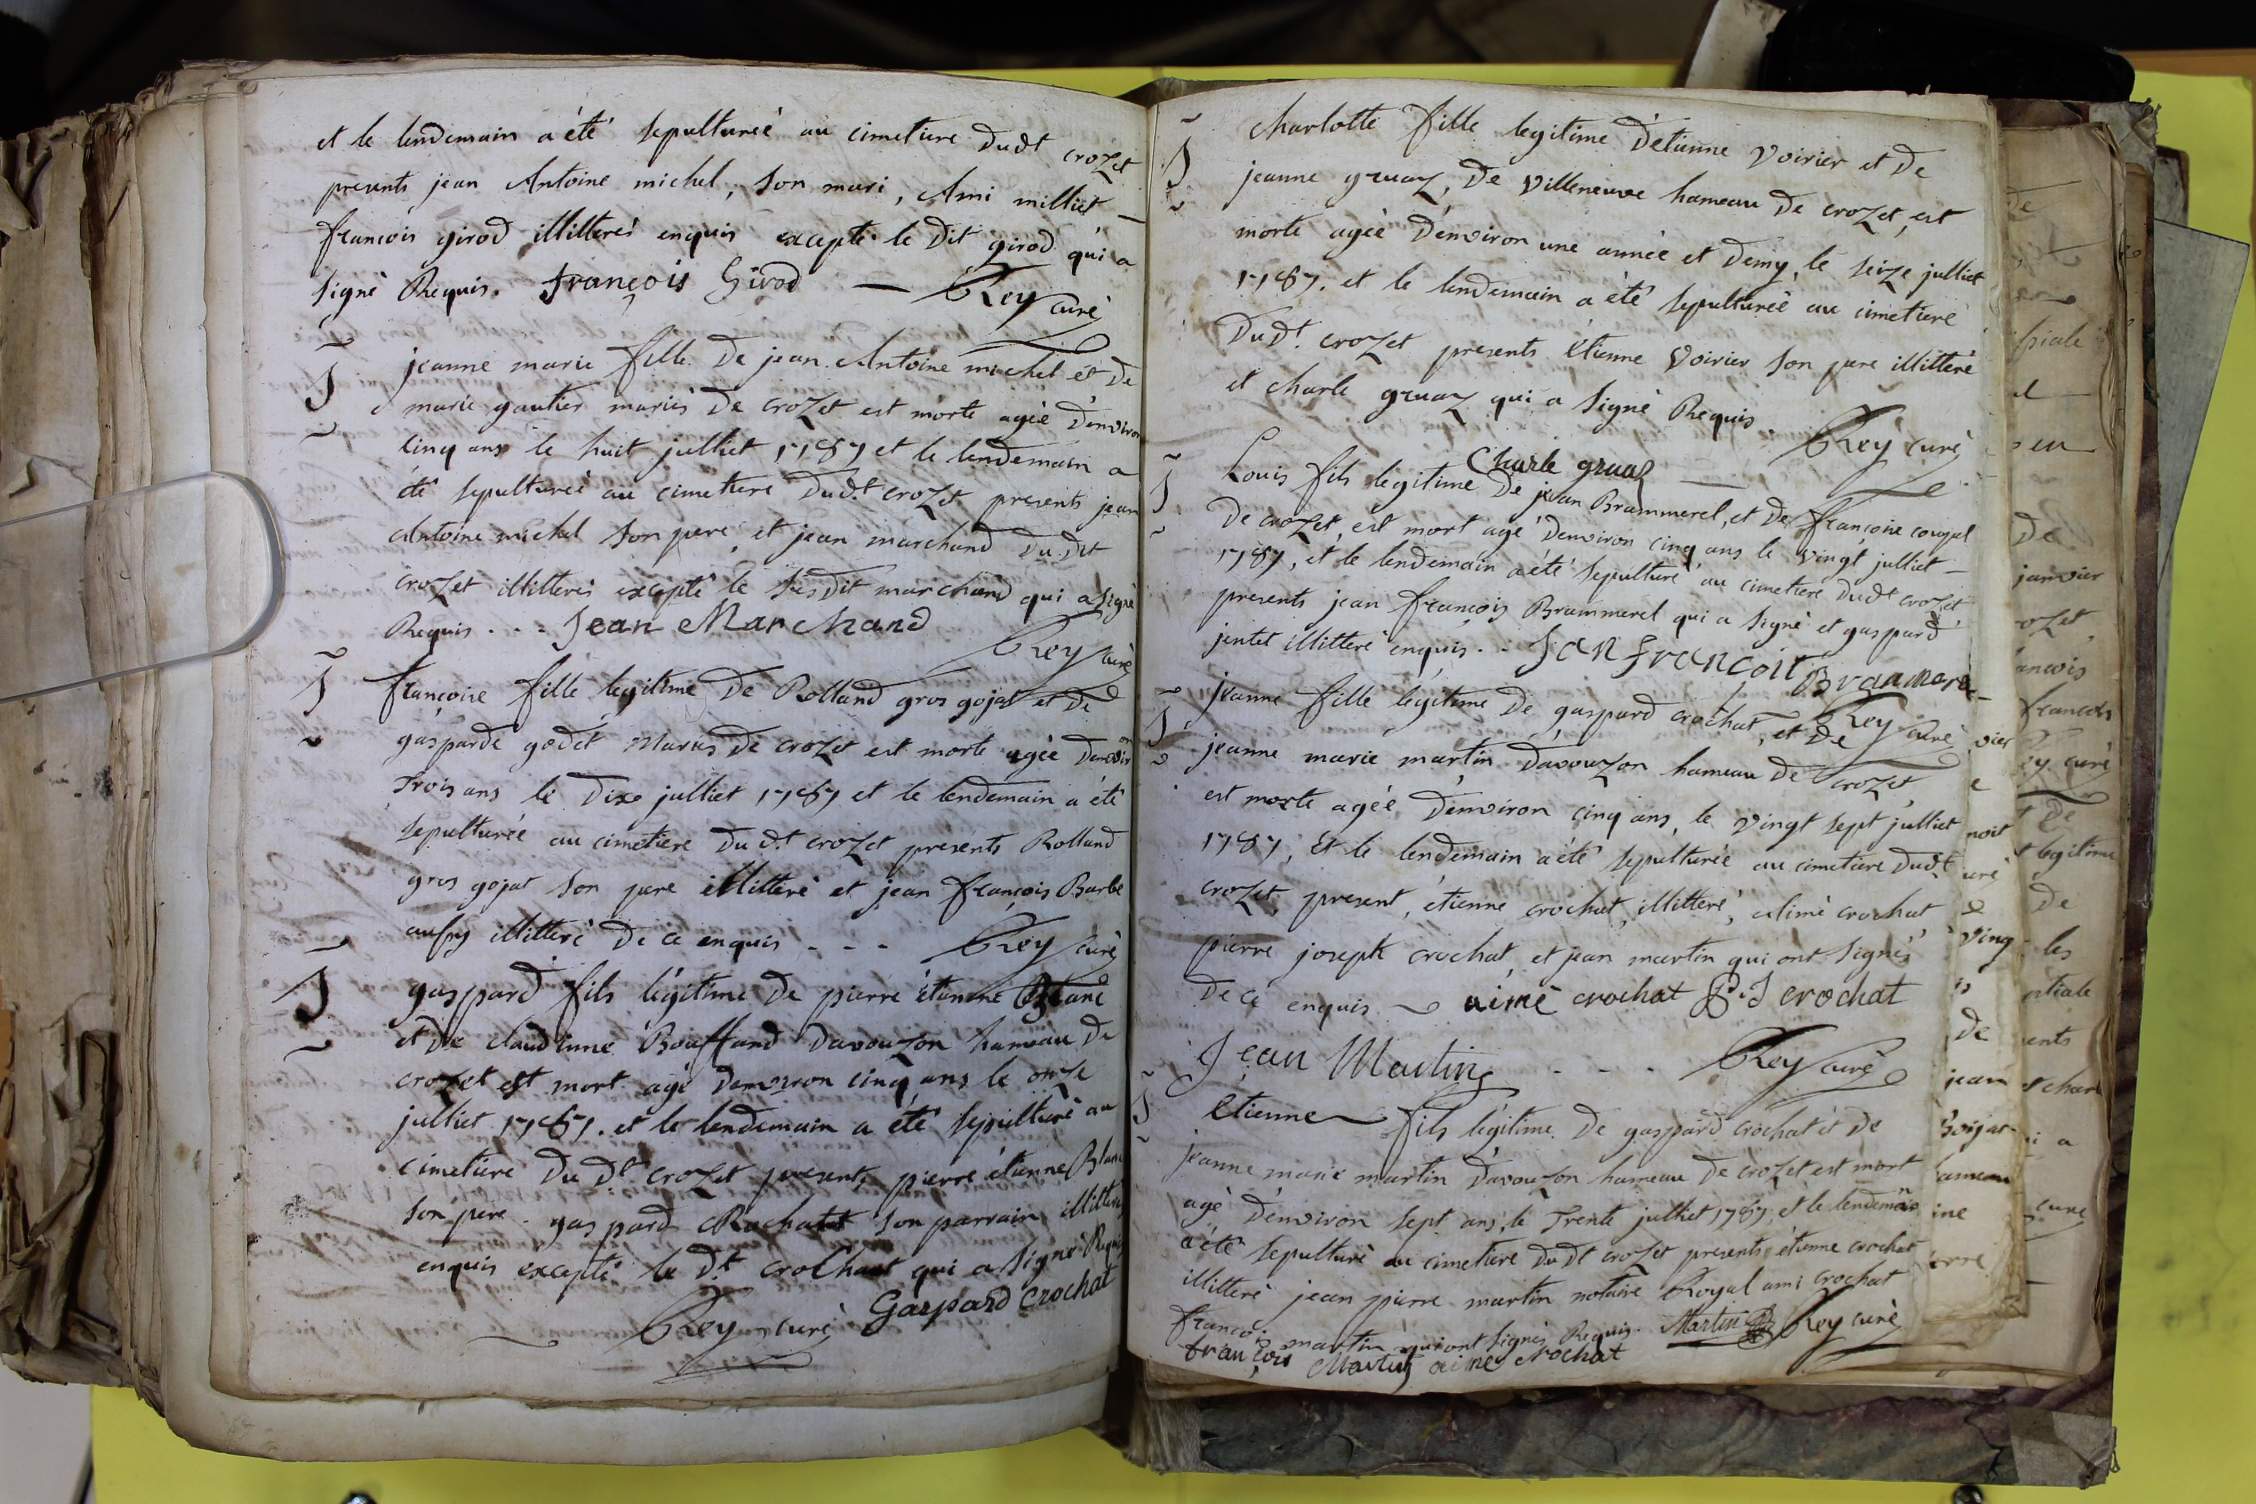 et le lendemain a été sepulturéé au cimetiere dudt crozet
presents jean Antoine michel, son mari, Ami milliet
francois girod illitterés enquis excepté le dit girod qui a
signé Requis. François Girod — Rey curé
jeanne marie fille de jean Antoine michel et de
marie gautier mariés de crozet est morte agéé d'environ
cinq ans le huit julliet 1787 et le lendemain a
été sepulturéé au cimetiere dudt crozet presents jean
Antoine michel son pere, et jean marchand du dit
crozet illitterés excepté le susdit marchand qui a signé
Requis . . . Jean Marchand Rey curé
françoise fille legitime de Rolland gros gojat et de
gasparde godet mariés de crozet est morte agéé denviron
trois ans le dixe julliet 1787 et le lendemain a été
sepulturéé au cimetiere dudt crozet presents Rolland
gros gojat son pere illitteré et jean françois Barbe
aussy illitteré de ce enquis - - - Rey curé
gaspard fils légitime de pierre étienne Blanc
et de claudinne Bouffand davouzon hameau de
crozet est mort agé denviron cinq ans le onze
julliet 1787. et le lendemain a été sepulturé au
cimetiere du dt crozet presents pierre étienne Blanc
son pere. gaspard Rochat son parrain illitterés
enquis excepté le dt crochat qui a signé Requis
Rey curé Gaspard Crochat
charlotte fille legitime d'étienne voirier et de
jeanne gruaz, de villeneuve hameau de crozet, est
morte agéé d'environ une année et demy, le seize julliet
1787. et le lendemain a été sepulturéé au cimetiere
dudt. crozet presents étienne voirier son pere illitteré
et charle gruaz qui a signé Requis. Rey curé
Charle gruaz
Louis fils légitime de jean Brammerel, et de françoise
de crozet, est mort agé denviron cinq ans le vingt julliet
1787, et le lendemain a été sepulturé au cimetiere dudt crozet
presents jean françois Brammerel qui a signé et gaspard
jentet illitteré enquis . . Jan francoir Bramerel
Rey curé
jeanne fille légitime de gaspard crochat, et de
jeanne marie martin davouzon hameau de crozet
est morte agéé d'environ cinq ans, le vingt sept julliet
1787, Et le lendemain a été sepulturéé au cimetiere dudt
crozet, present, étienne crochat, illitteré, Aimé crochat
pierre joseph crochat, et jean martin qui ont signés
de ce enquis aimé crochat P.J crochat
Jean Martin - - - Rey curé
Etienne fils légitime de gaspard crochat et de
jeanne marie martin d'avouzon hameau de crozet est mort
agé d'environ sept ans, le trente julliet 1787, et le lendemain
a été sepulturé au cimetiere dudt crozet presents étienne crochat
illitteré jean pierre martin notaire Royal ami crochat
françois martin qui ont signés Requis. Martin Rey curé
françois Martin aimé crochat